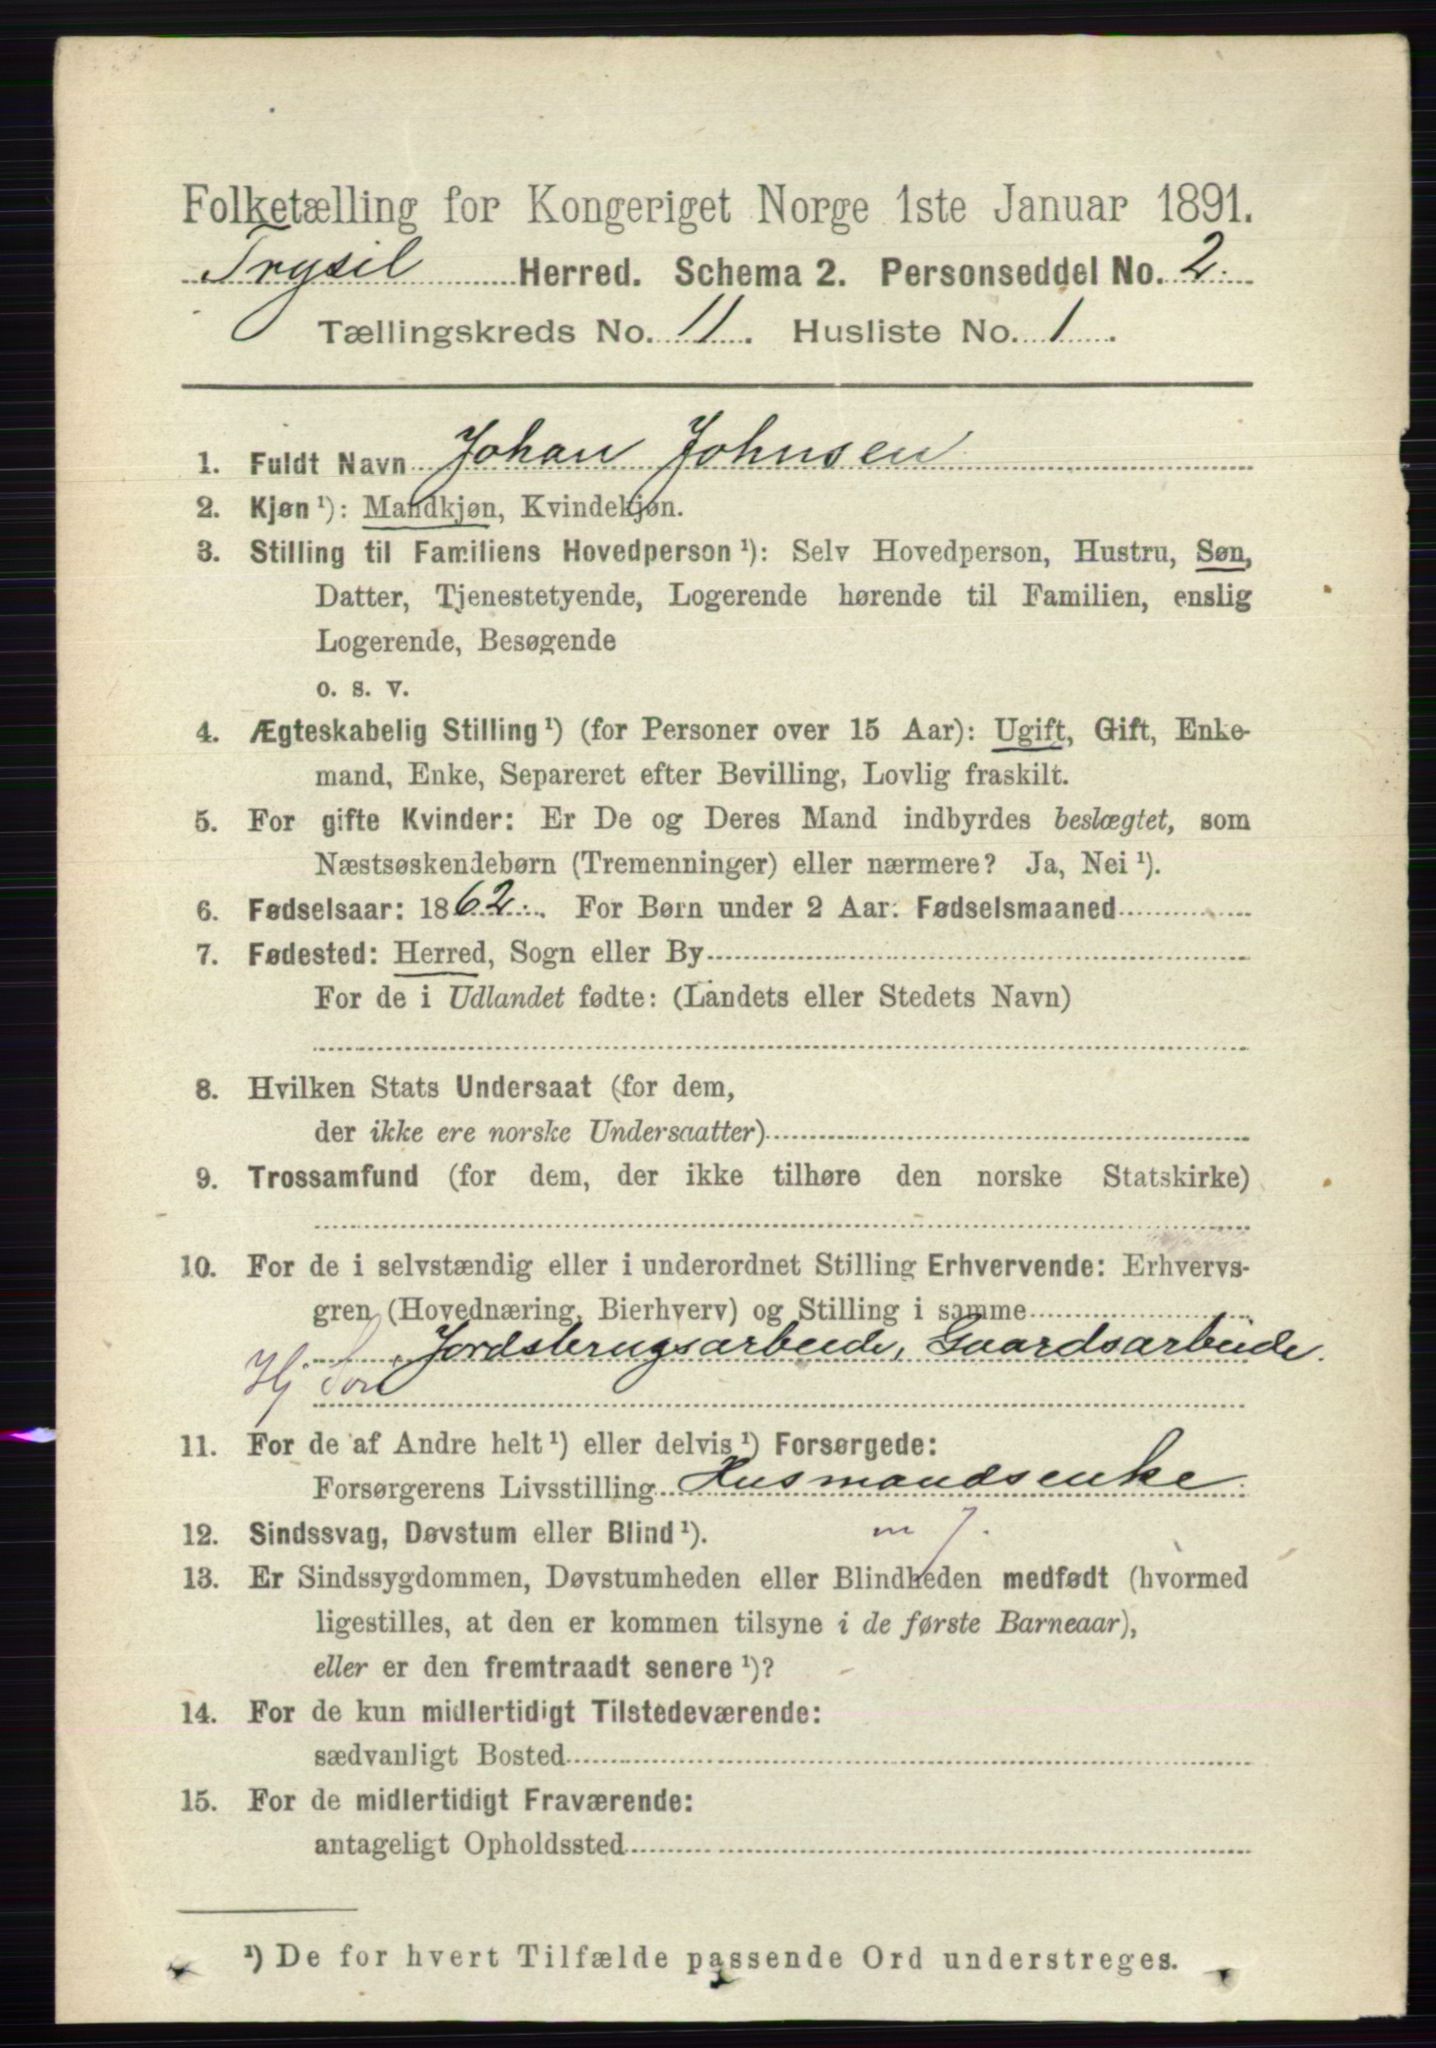 Folketælling for Kongeriget Norge 1ste Januar 1891.
Trysil Herred. Schema 2. Personseddel No. 2.
Tællingskreds No. 11. Husliste No. 1.
1. Fuldt Navn Johan Johnsen
2. Kjøn ¹): Mandkjøn, Kvindekjøn.
3. Stilling til Familiens Hovedperson ¹): Selv Hovedperson, Hustru, Søn,
Datter, Tjenestetyende, Logerende hørende til Familien, enslig
Logerende, Besøgende
o. s. v.
4. Ægteskabelig Stilling ¹) (for Personer over 15 Aar): Ugift, Gift, Enke-
mand, Enke, Separeret efter Bevilling, Lovlig fraskilt.
5. For gifte Kvinder: Er De og Deres Mand indbyrdes beslægtet, som
Næstsøskendebørn (Tremenninger) eller nærmere? Ja, Nei ¹).
6. Fødselsaar: 1862. For Børn under 2 Aar: Fødselsmaaned
7. Fødested: Herred, Sogn eller By
For de i Udlandet fødte: (Landets eller Stedets Navn)
8. Hvilken Stats Undersaat (for dem,
der ikke ere norske Undersaatter)
9. Trossamfund (for dem, der ikke tilhøre den norske Statskirke)
10. For de i selvstændig eller i underordnet Stilling Erhvervende: Erhvervs-
gren (Hovednæring, Bierhverv) og Stilling i samme
Jordsbrugsarbeide, Gaardsarbeide.
Hj Søn
11. For de af Andre helt ¹) eller delvis ¹) Forsørgede:
Forsørgerens Livsstilling Husmandsenke.
12. Sindssvag, Døvstum eller Blind ¹).
13. Er Sindssygdommen, Døvstumheden eller Blindheden medfødt (hvormed
ligestilles, at den er kommen tilsyne i de første Barneaar),
eller er den fremtraadt senere ¹)?
14. For de kun midlertidigt Tilstedeværende:
sædvanligt Bosted
15. For de midlertidigt Fraværende:
antageligt Opholdssted
¹) De for hvert Tilfælde passende Ord understreges.